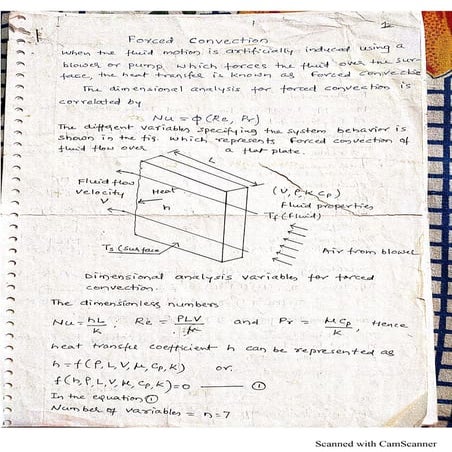 1
Forced Convection
When the fluid motion is artificially induced using a
blower or pump which forces the fluid over the sur-
face, the heat transfer is known as forced convection
The dimensional analysis for forced convection is
correlated by
Nu = Φ (Re, Pr)
The different variables specifying the system behavior is
shown in the fig. which represents forced convection of
fluid flow over a flat plate.
L
Fluid flow
velocity
V
Heat
h
(V, ρ, K, Cp)
Fluid properties
Tf (fluid)
Ts (surface
Air from blower
Dimensional analysis variables for forced
convection.
The dimensionless numbers
Nu = hL/K ; Re = ρLV/μ and Pr = μCp/K, Hence
heat transfer coefficient h can be represented as
h = f(ρ, L, V, μ, Cp, K) or.
f(h, ρ, L, V, μ, Cp, K) = 0 —— ①
In the equation ①
Number of variables = n = 7
Scanned with CamScanner